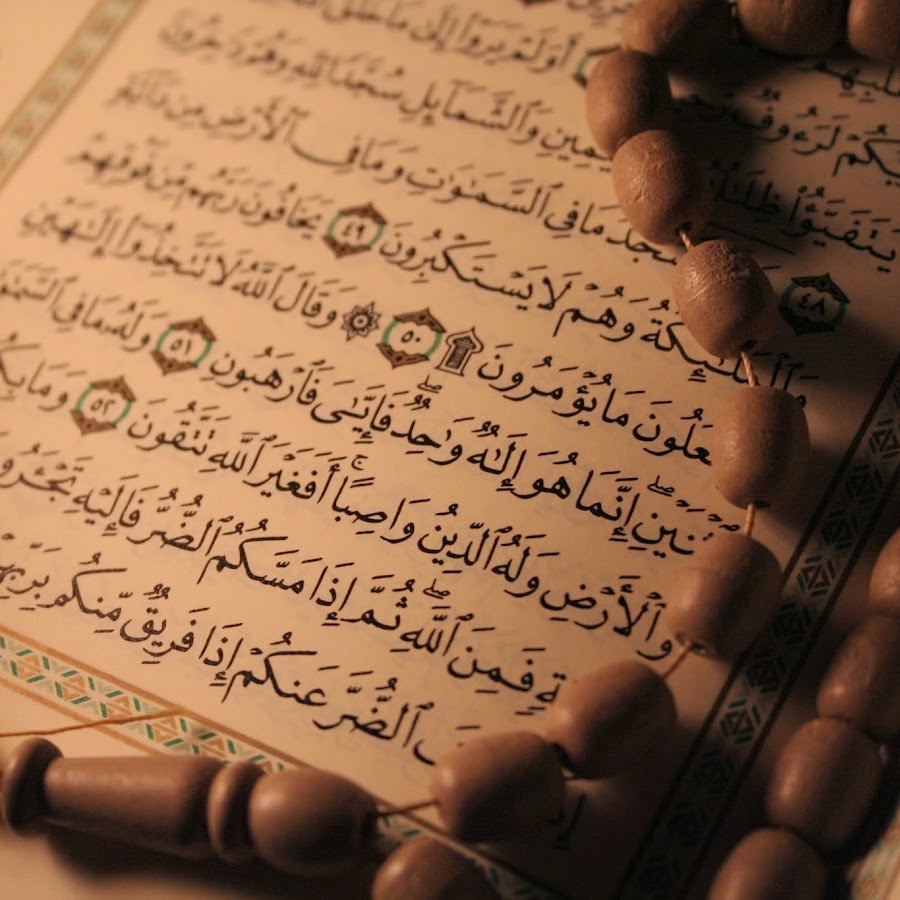 لَرَءُوفٌ أَوَلَمْ يَرَوْا۟ إِلَىٰ مَا خَلَقَ
يَتَفَيَّؤُا۟ ظِلَٰلُهُۥ وَٱلشَّمَآئِلِ سُجَّدًا لِّلَّهِ وَهُمْ دَٰخِرُونَ
٤٨ مَا فِى ٱلسَّمَٰوَٰتِ وَمَا فِى ٱلْأَرْضِ مِن دَآبَّةٍ
وَٱلْمَلَٰٓئِكَةُ وَهُمْ لَا يَسْتَكْبِرُونَ ٤٩ يَخَافُونَ رَبَّهُم مِّن فَوْقِهِمْ
مَا يُؤْمَرُونَ ۩ ٥٠ ۞ وَقَالَ ٱللَّهُ لَا تَتَّخِذُوٓا۟ إِلَٰهَيْنِ
ٱثْنَيْنِ ۖ إِنَّمَا هُوَ إِلَٰهٌ وَٰحِدٌ ۖ فَإِيَّٰىَ فَٱرْهَبُونِ ٥١ وَلَهُۥ مَا فِى ٱلسَّمَٰوَٰتِ
وَٱلْأَرْضِ وَلَهُ ٱلدِّينُ وَاصِبًا ۚ أَفَغَيْرَ ٱللَّهِ تَتَّقُونَ ٥٢ وَمَا بِكُم
فَمِنَ ٱللَّهِ ۖ ثُمَّ إِذَا مَسَّكُمُ ٱلضُّرُّ فَإِلَيْهِ تَجْـَٔرُونَ
ٱلضُّرَّ عَنكُمْ إِذَا فَرِيقٌ مِّنكُم بِرَبِّهِمْ